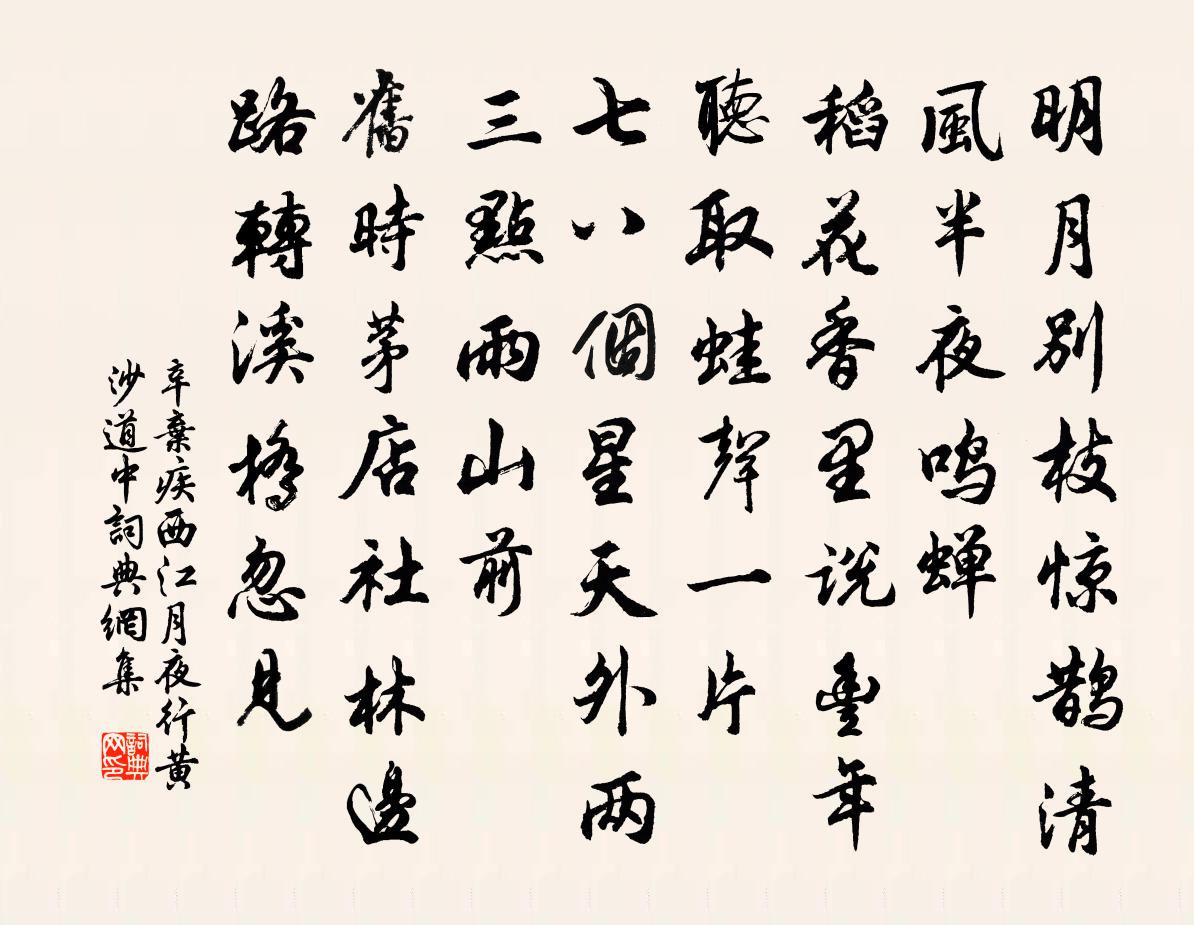 明月別枝惊鹊清
風半夜鸣蝉
稻花香里说豐年
聽取蛙聲一片
七八個星天外两
三點雨山前
舊時茅店社林邊
路轉溪橋忽見
辛棄疾西江月夜行黄
沙道中詞典網集
詞典网印